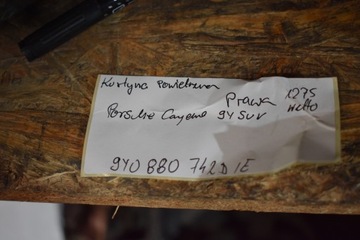 Kurtyna powietrzna
Prawa 1275
Porsche Cayenne 9Y SUV netto
9Y0 880 742 D IE